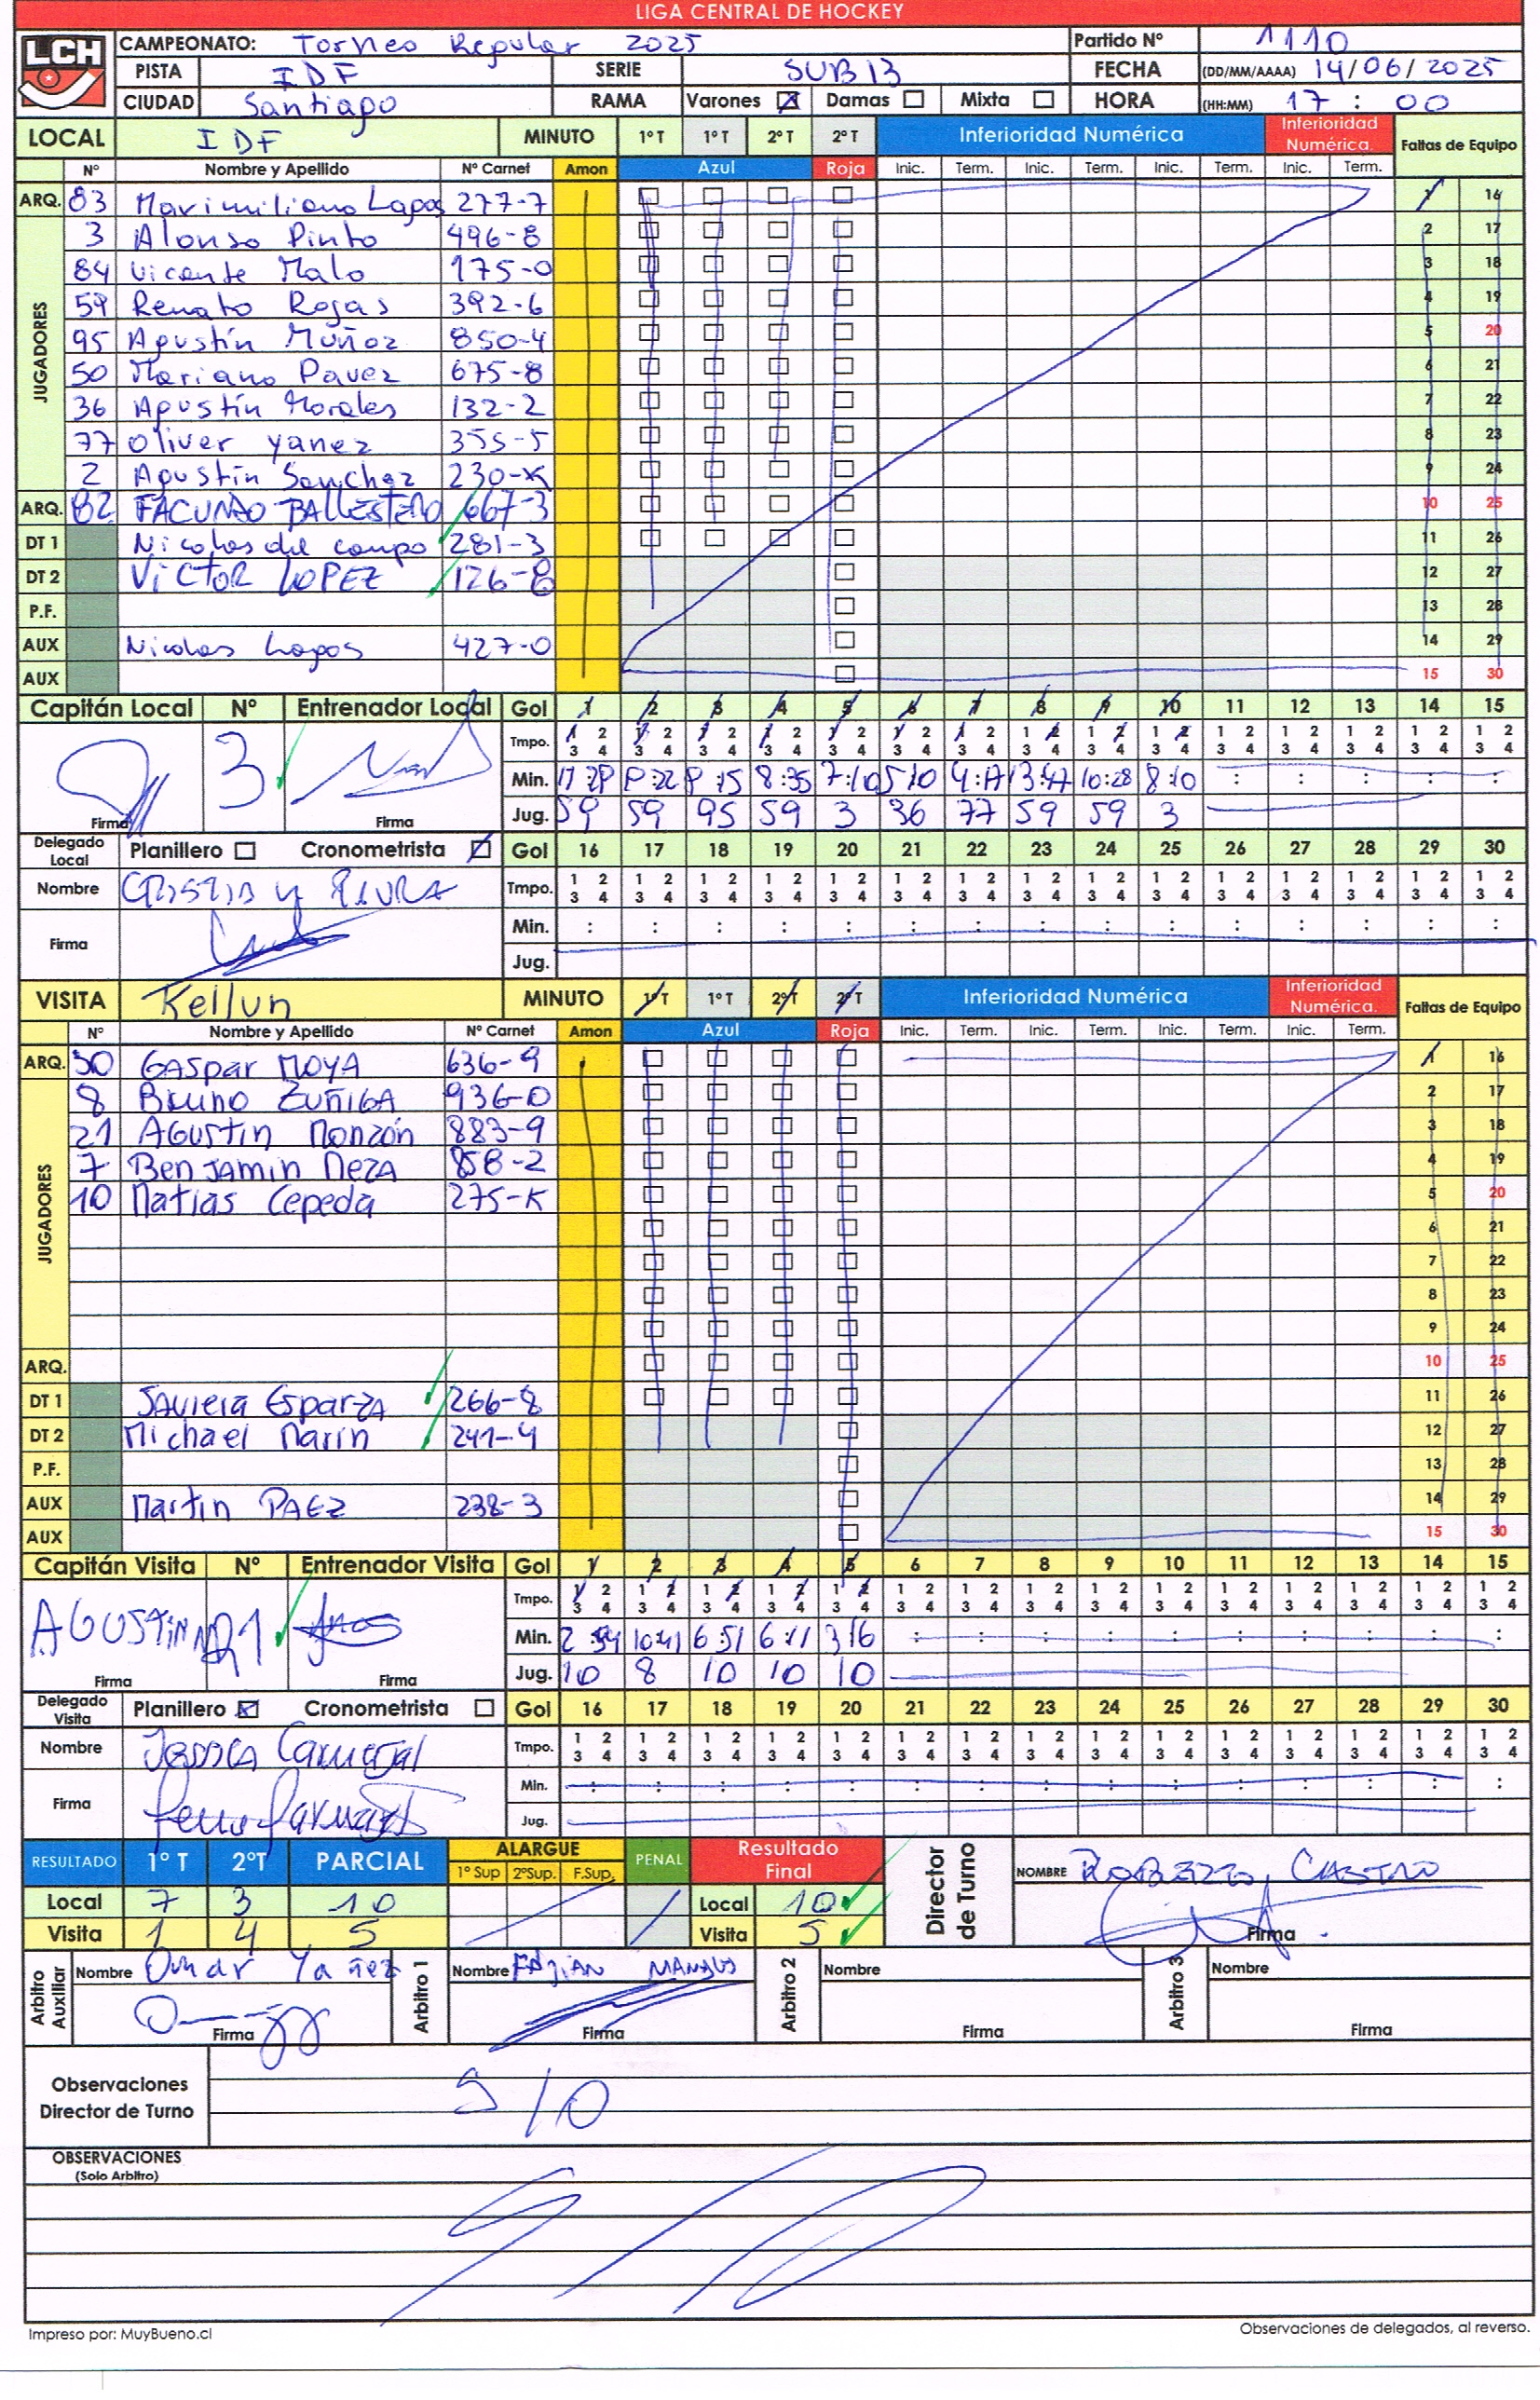 LIGA CENTRAL DE HOCKEY
LCH CAMPEONATO: Torneo Regular 2025 Partido Nº 1110
PISTA IDF SERIE SUB 13 FECHA (DD/MM/AAAA) 14/06/2025
CIUDAD Santiago RAMA Varones Damas Mixta HORA (HH:MM) 17 : 00
LOCAL IDF MINUTO 1º T 1º T 2º T 2º T Inferioridad Numérica Inferioridad Numérica. Faltas de Equipo
Nº Nombre y Apellido Nº Carnet Amon Azul Roja Inic. Term. Inic. Term. Inic. Term. Inic. Term.
ARQ. 83 Maximiliano Lagos 277-7 1 16
JUGADORES
3 Alonso Pinto 496-8 2 17
84 Vicente Malo 175-0 3 18
59 Renato Rojas 392-6 4 19
95 Agustín Muñoz 850-4 5 20
50 Mariano Pavez 675-8 6 21
36 Agustín Morales 132-2 7 22
77 Oliver Yanez 355-5 8 23
2 Agustín Sanchez 230-K 9 24
ARQ. 82 FACUNDO BALLESTERO 667-3 10 25
DT 1 Nicolas del campo 281-3 11 26
DT 2 VICTOR LOPEZ 126-8 12 27
P.F. 13 28
AUX Nicolas Lagos 427-0 14 29
AUX 15 30
Capitán Local Nº Entrenador Local Gol 1 2 3 4 5 6 7 8 9 10 11 12 13 14 15
Tmpo. 1 2 1 2 1 2 1 2 1 2 1 2 1 2 1 2 1 2 1 2 1 2 1 2 1 2 1 2 1 2
3 4 3 4 3 4 3 4 3 4 3 4 3 4 3 4 3 4 3 4 3 4 3 4 3 4 3 4 3 4
3 Min. 8:35 7:10 5:10 13:47 10:28 8:10 : : : : :
Firma Firma Jug. 59 59 95 59 3 36 77 59 59 3
Delegado Local Planillero Cronometrista Gol 16 17 18 19 20 21 22 23 24 25 26 27 28 29 30
Nombre Tmpo. 1 2 1 2 1 2 1 2 1 2 1 2 1 2 1 2 1 2 1 2 1 2 1 2 1 2 1 2 1 2
3 4 3 4 3 4 3 4 3 4 3 4 3 4 3 4 3 4 3 4 3 4 3 4 3 4 3 4 3 4
Firma Min. : : : : : : : : : : : : : : :
Jug.
VISITA Kellun MINUTO 1º T 1º T 2º T 2º T Inferioridad Numérica Inferioridad Numérica. Faltas de Equipo
Nº Nombre y Apellido Nº Carnet Amon Azul Roja Inic. Term. Inic. Term. Inic. Term. Inic. Term.
ARQ. 30 Gaspar MOYA 636-9 1 16
JUGADORES
8 Bruno ZUÑIGA 936-0 2 17
21 AGUSTIN Monzón 883-9 3 18
7 BenJAMIN MEZA 858-2 4 19
10 Matias Cepeda 275-K 5 20
6 21
7 22
8 23
9 24
ARQ. 10 25
DT 1 JAVIERA ESparzA 266-8 11 26
DT 2 Michael Marin 241-4 12 27
P.F. 13 28
AUX Martin PAEZ 238-3 14 29
AUX 15 30
Capitán Visita Nº Entrenador Visita Gol 1 2 3 4 5 6 7 8 9 10 11 12 13 14 15
Tmpo. 1 2 1 2 1 2 1 2 1 2 1 2 1 2 1 2 1 2 1 2 1 2 1 2 1 2 1 2 1 2
3 4 3 4 3 4 3 4 3 4 3 4 3 4 3 4 3 4 3 4 3 4 3 4 3 4 3 4 3 4
AGUSTIN M 21 Min. 2:54 10:41 6:51 6:11 3 16 : : : : : : : : : :
Firma Firma Jug. 10 8 10 10 10
Delegado Visita Planillero Cronometrista Gol 16 17 18 19 20 21 22 23 24 25 26 27 28 29 30
Nombre Tmpo. 1 2 1 2 1 2 1 2 1 2 1 2 1 2 1 2 1 2 1 2 1 2 1 2 1 2 1 2 1 2
3 4 3 4 3 4 3 4 3 4 3 4 3 4 3 4 3 4 3 4 3 4 3 4 3 4 3 4 3 4
Firma Min. : : : : : : : : : : : : : : :
Jug.
RESULTADO 1º T 2ºT PARCIAL ALARGUE 1º Sup 2ºSup. F.Sup. PENAL Resultado Final Director de Turno NOMBRE ROBERTO CASTRO
Local 7 3 10 Local 10
Visita 1 4 5 Visita 5 Firma
Arbitro Auxiliar Nombre Omar Yañez Arbitro 1 Nombre FABIAN Arbitro 2 Nombre Arbitro 3 Nombre
Firma Firma Firma Firma
Observaciones Director de Turno S/O
OBSERVACIONES
(Solo Arbitro)
Impreso por: MuyBueno.cl Observaciones de delegados, al reverso.